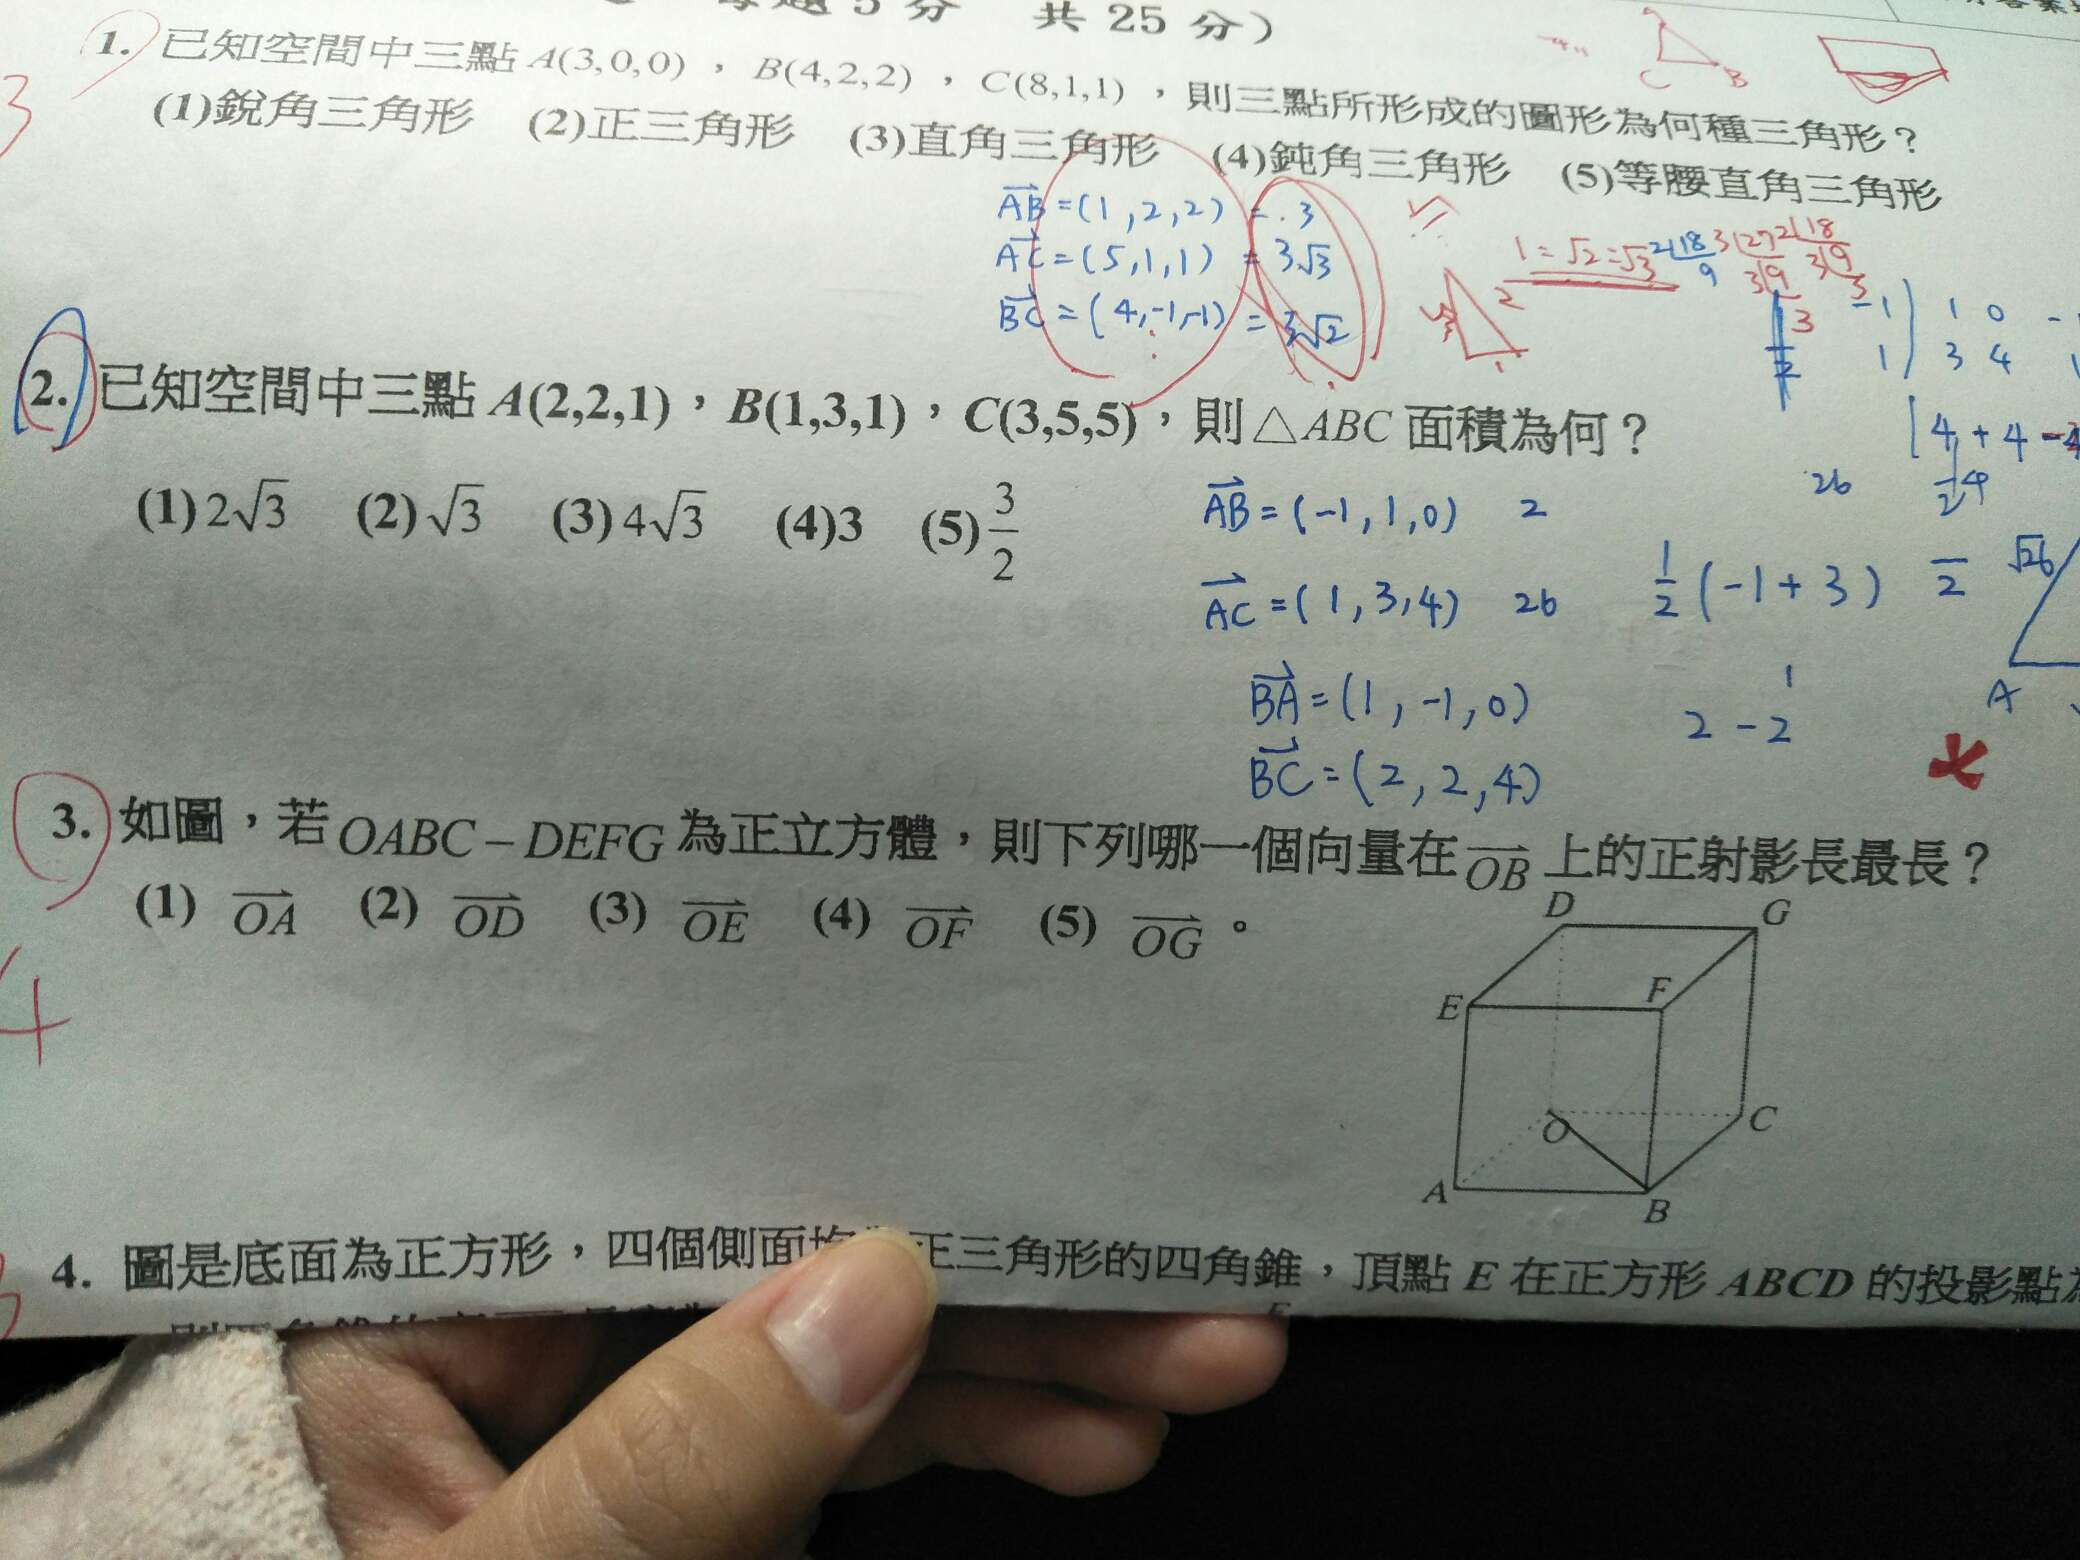 每題 5 分 共 25 分)
1. 已知空間中三點 A(3,0,0),B(4,2,2),C(8,1,1),則三點所形成的圖形為何種三角形?
(1)銳角三角形 (2)正三角形 (3)直角三角形 (4)鈍角三角形 (5)等腰直角三角形
3
C B
AB = (1,2,2) = 3
AC = (5,1,1) = 3√3
BC = (4,-1,-1) = 3√2
1 = √2 = √3
2 18 9
3 27 3 9 3
2 18 3 9 3
-1 1 0 -
1 3 4
2. 已知空間中三點 A(2,2,1),B(1,3,1),C(3,5,5),則△ABC 面積為何?
4 + 4 - 4
(1) 2√3 (2) √3 (3) 4√3 (4) 3 (5) 3/2
AB = (-1,1,0) 2
26
AC = (1,3,4) 26
1/2 (-1+3)
2
√26
A
BA = (1,-1,0)
2 - 2
BC = (2,2,4)
3. 如圖,若 OABC-DEFG 為正立方體,則下列哪一個向量在 OB 上的正射影長最長?
(1) OA (2) OD (3) OE (4) OF (5) OG。
4
D G
E F
O C
A B
4. 圖是底面為正方形,四個側面 正三角形的四角錐,頂點 E 在正方形 ABCD 的投影點